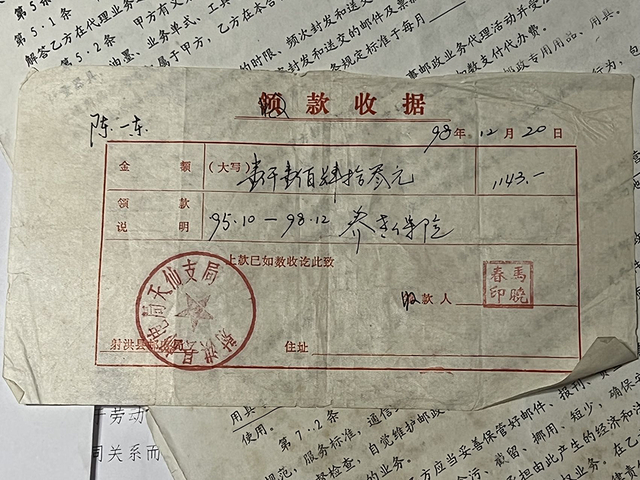 第5条
5.1条
解答乙方在代理业务
5.2条 甲方有义
油墨、业务单式、工具
属于甲方,乙方在本合
的时限、频次封发和送交
封发和送交的邮件及票款
条规定标准于每月
事邮政业务代理活动并受
如数支付代办费。
邮政专用用品、用具。
行为,包
领款收据
陈一东
98年12月20日
金额
(大写)壹仟壹佰肆拾叁元
1143.-
领款
说明
95.10-98.12 养老保险
上款已如数收讫此致
收款人
马晓春印
射洪县邮电局天仙支局
射洪县邮电局
住址
劳动
同关系而
用具
使用。
第7.2条
规范,服务标准,通信
督检查,自觉维护邮政
的业务。
方应当妥善保管好邮件、报刊、票
贪污、截留、挪用、短少,确保
承担由此产生的经济和法
业务,在乙